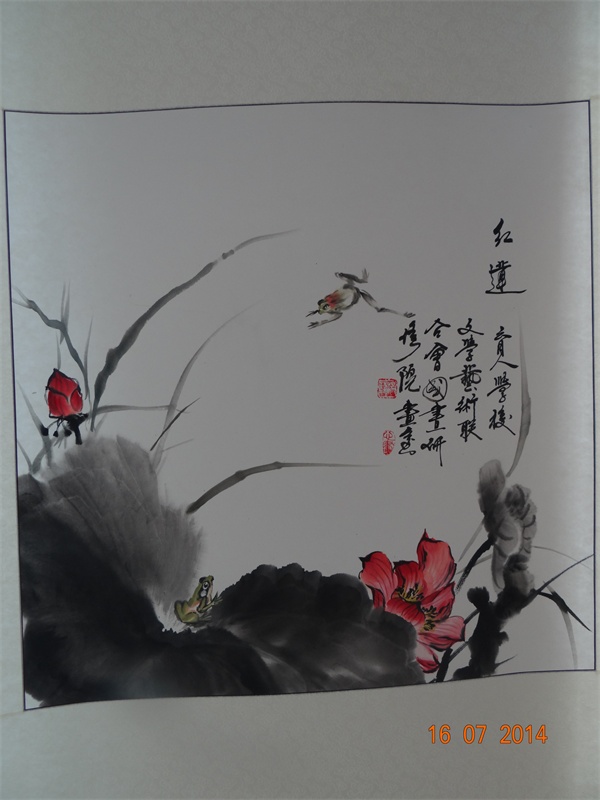 红蓮
育人學校
文學藝術联
合會國畫研
修院
16 07 2014